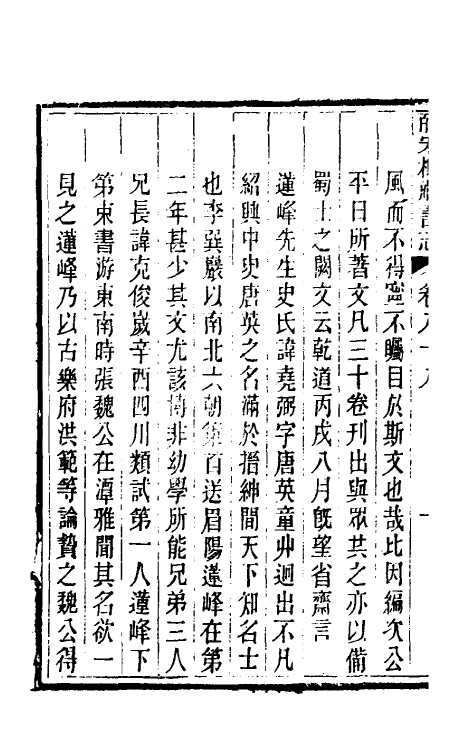 皕宋樓藏書志 卷八十八 一
風而不得寧不矚目於斯文也哉比因編次公
平日所著文凡三十卷刊出與眾共之亦以備
蜀士之闕文云乾道丙戌八月旣望省齋言
蓮峰先生史氏諱堯弼字唐英童丱迥出不凡
紹興中史唐英之名滿於搢紳間天下知名士
也李巽巖以南北六朝策首送眉陽蓮峰在第
二年甚少其文尤該博非幼學所能兄弟三人
兄長諱克俊歲辛酉四川類試第一人蓮峰下
第束書游東南時張魏公在潭雅聞其名欲一
見之蓮峰乃以古樂府洪範等論贄之魏公得